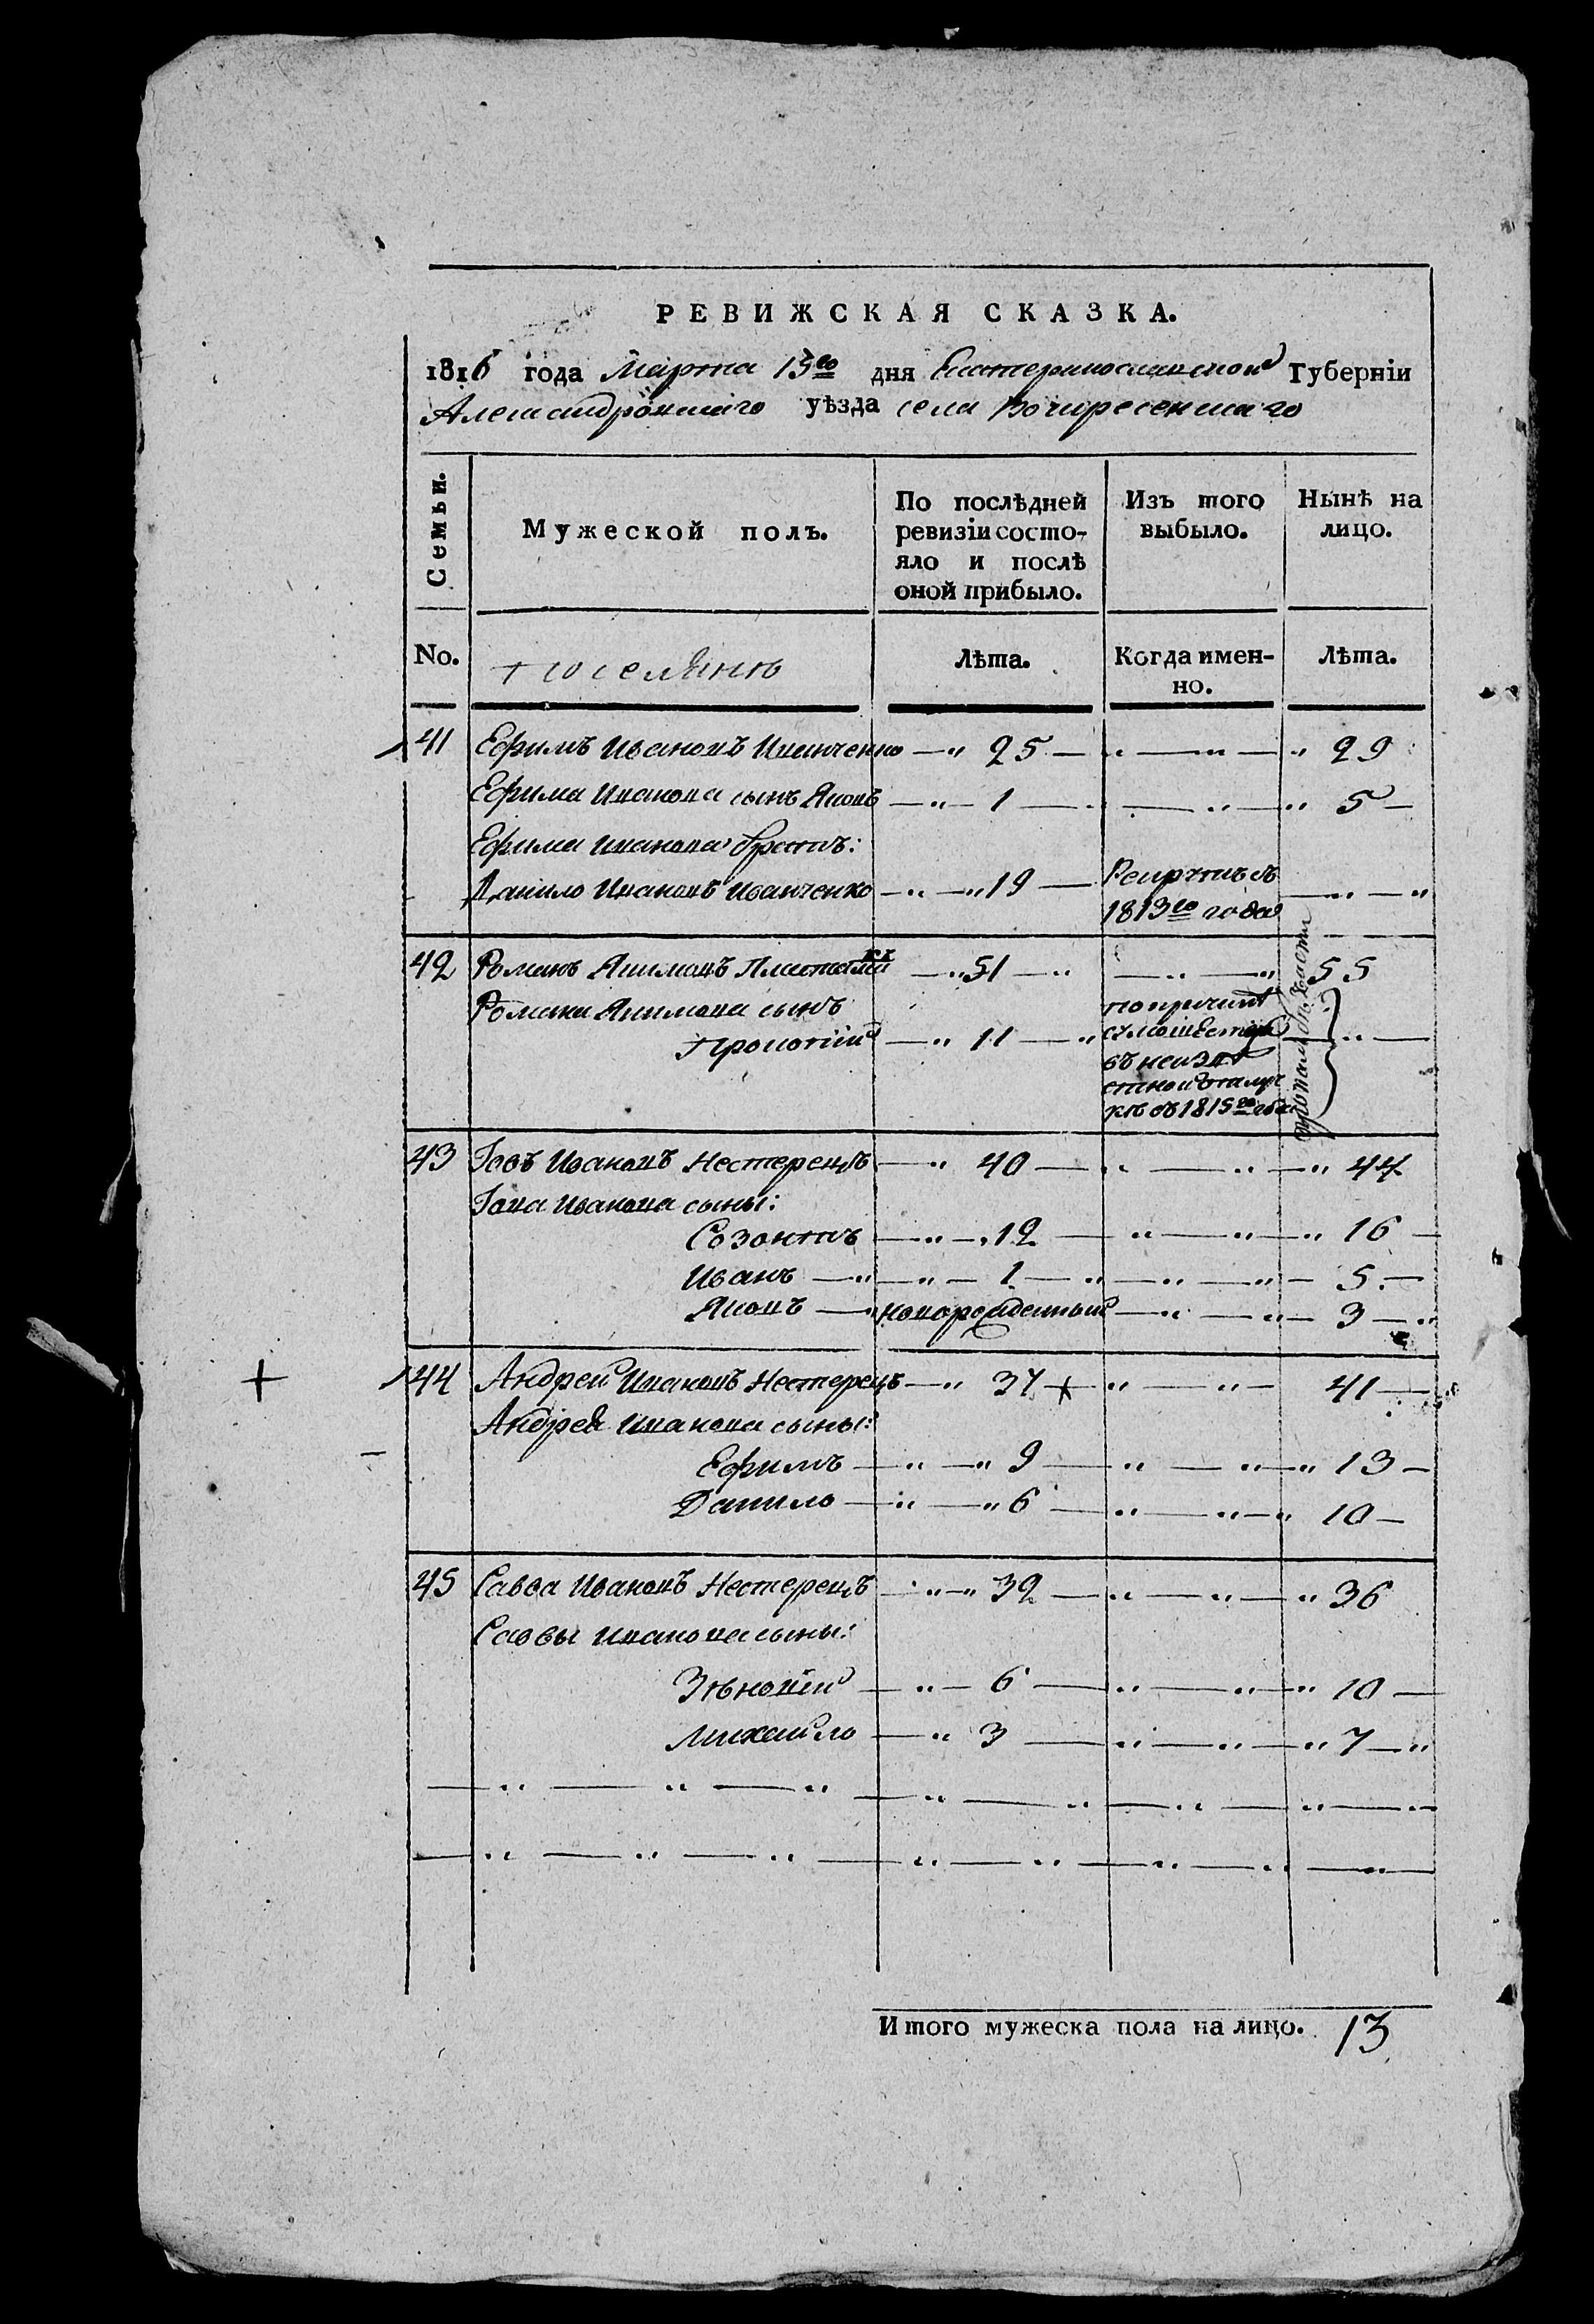 РЕВИЖСКАЯ СКАЗКА.
1816 года Марта 15го дня Екатеринославской Губерніи
Александровскаго уѣзда села Воскресенскаго
Семьи.
Мужеской полъ.
По послѣдней
ревизіи состо-
яло и послѣ
оной прибыло.
Изъ того
выбыло.
Нынѣ на
лицо.
No.
поселянъ
Лѣта.
Когда имен-
но.
Лѣта.
41 Ефимъ Ивановъ Иванченко 25 29
Ефима Иванова сынъ Яковъ 1 5
Ефима Иванова братъ:
Данило Ивановъ Иванченко 19 Рекрутъ съ
1813го года
42 Романъ Якимовъ 51 55
Романа Якимова сынъ
Прокопій 11
въ 1815го года
43 Іовъ Ивановъ Нестерецъ 40 44
Іова Иванова сыны:
Созонтъ 12 16
Иванъ 1 5
Яковъ новорожденный 3
44 Андрей Ивановъ Нестерецъ 37 41
Андрея Иванова сыны:
Ефимъ 9 13
Данило 6 10
45 Савва Ивановъ Нестерецъ 32 36
Саввы Иванова сыны:
Зѣновій 6 10
Михайло 3 7
Итого мужеска пола на лицо. 13